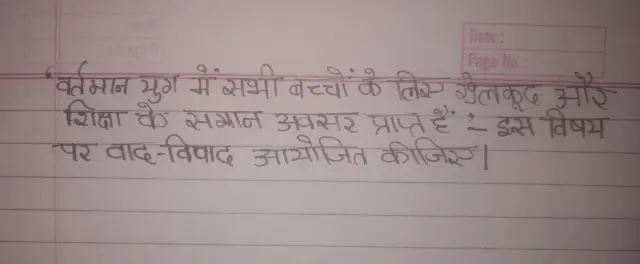 Date :
Page No. :
'वर्तमान युग में सभी बच्चों के लिए खेलकूद और
शिक्षा के समान अवसर प्राप्त हैं ':- इस विषय
पर वाद-विवाद आयोजित कीजिए।